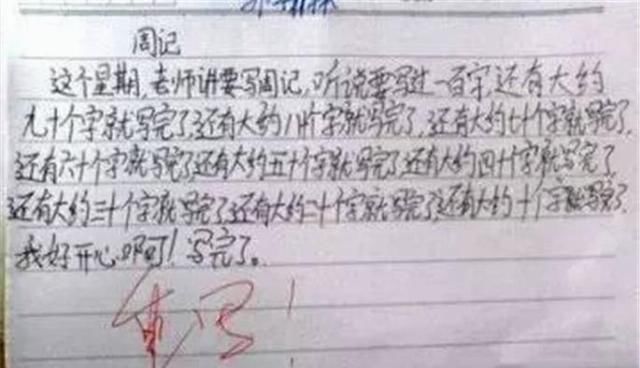 周记
这个星期,老师讲要写周记,听说要写过一百字还有大约
九十个字就写完了,还有大约八十个字就写完了,还有大约七十个字就写完了,
还有六十个字就写完了还有大约五十个字就写完了还有大约四十个字就写完了
还有大约三十个字就写完了还有大约二十个字就写完了还有大约十个字就写完了.
我好开心啊!写完了。
重写!